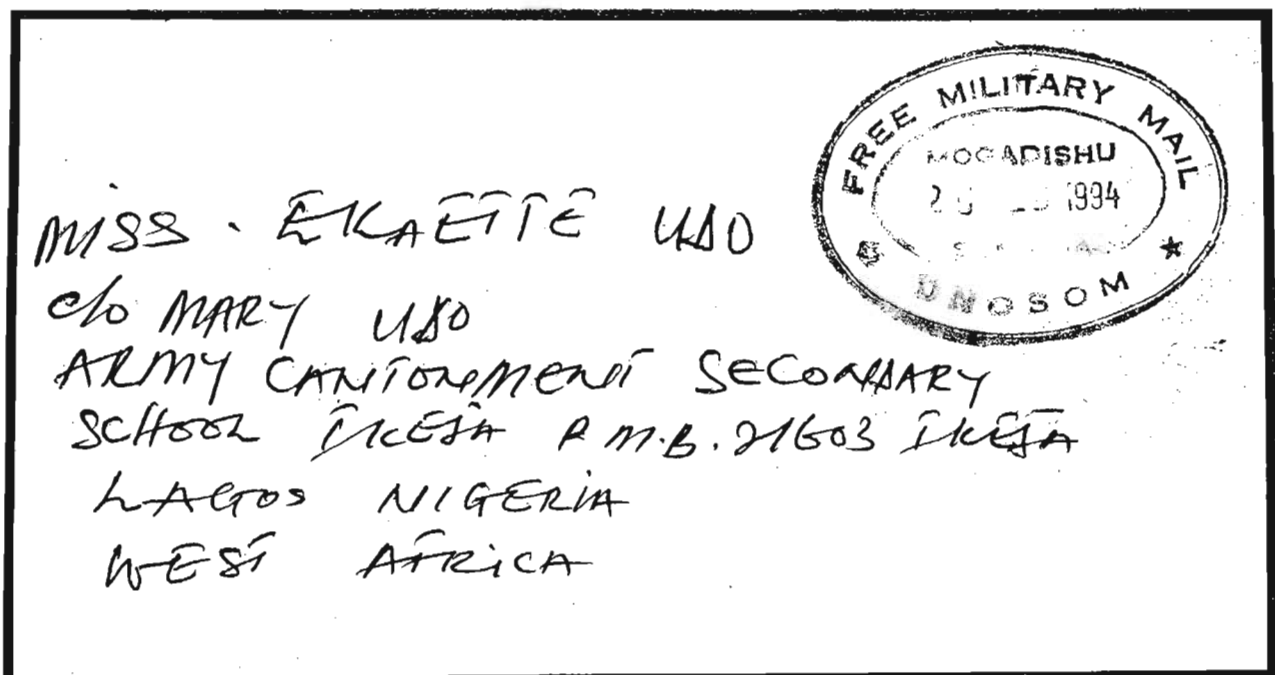 FREE MILITARY MAIL
MOGADISHU
1994
UNOSOM
MISS. EKAETTE UDO
c/o MARY UDO
ARMY CANTONMENT SECONDARY
SCHOOL IKEJA P.M.B. 21603 IKEJA
LAGOS NIGERIA
WEST AFRICA